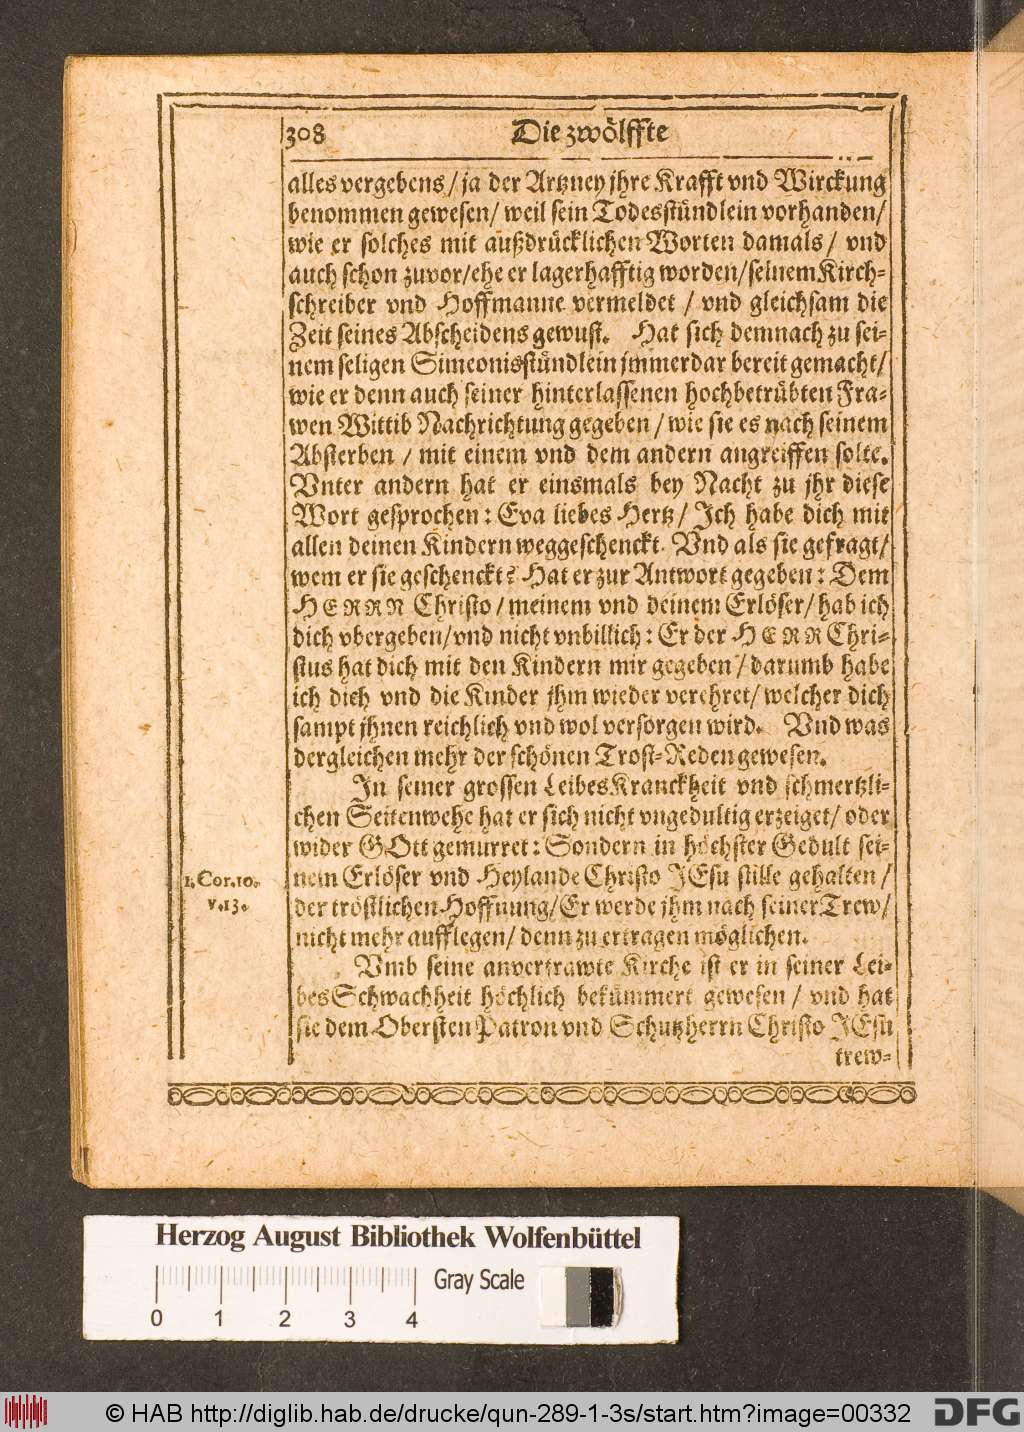 308 Die zwölffte
alles vergebens / ja der Artzney jhre Krafft vnd Wirckung
benommen gewesen / weil sein Todesstündlein vorhanden /
wie er solches mit außdrücklichen Worten damals / vnd
auch schon zuvor / ehe er lagerhafftig worden / seinem Kirch-
schreiber vnd Hoffmanne vermeldet / vnd gleichsam die
Zeit seines Abscheidens gewust. Hat sich demnach zu sei-
nem seligen Simeonisstündlein jmmerdar bereit gemacht /
wie er denn auch seiner hinterlassenen hochbetrübten Fra-
wen Wittib Nachrichtung gegeben / wie sie es nach seinem
Absterben / mit einem vnd dem andern angreiffen solte.
Vnter andern hat er einsmals bey Nacht zu jhr diese
Wort gesprochen: Eva liebes Hertz / Ich habe dich mit
allen deinen Kindern weggeschenckt. Vnd als sie gefragt /
wem er sie geschenckt? Hat er zur Antwort gegeben: Dem
HERRN Christo / meinem vnd deinem Erlöser / hab ich
dich vbergeben / vnd nicht vnbillich: Er der HERR Chri-
stus hat dich mit den Kindern mir gegeben / darumb habe
ich dich vnd die Kinder jhm wieder verehret / welcher dich
sampt jhnen reichlich vnd wol versorgen wird. Vnd was
dergleichen mehr der schönen Trost-Reden gewesen.
In seiner grossen LeibesKranckheit vnd schmertzli-
chen Seitenwehe hat er sich nicht vngedultig erzeiget / oder
wider GOtt gemurret: Sondern in höchster Gedult sei-
1. Cor. 10. nem Erlöser vnd Heylande Christo JEsu stille gehalten /
v. 13. der tröstlichen Hoffnung / Er werde jhm nach seiner Trew /
nicht mehr aufflegen / denn zu ertragen möglichen.
Vmb seine anvertrawte Kirche ist er in seiner Lei-
bes Schwachheit höchlich bekümmert gewesen / vnd hat
sie dem Obersten Patron vnd Schutzherrn Christo JEsu
trew-
Herzog August Bibliothek Wolfenbüttel
Gray Scale
0 1 2 3 4
© HAB http://diglib.hab.de/drucke/qun-289-1-3s/start.htm?image=00332
DFG